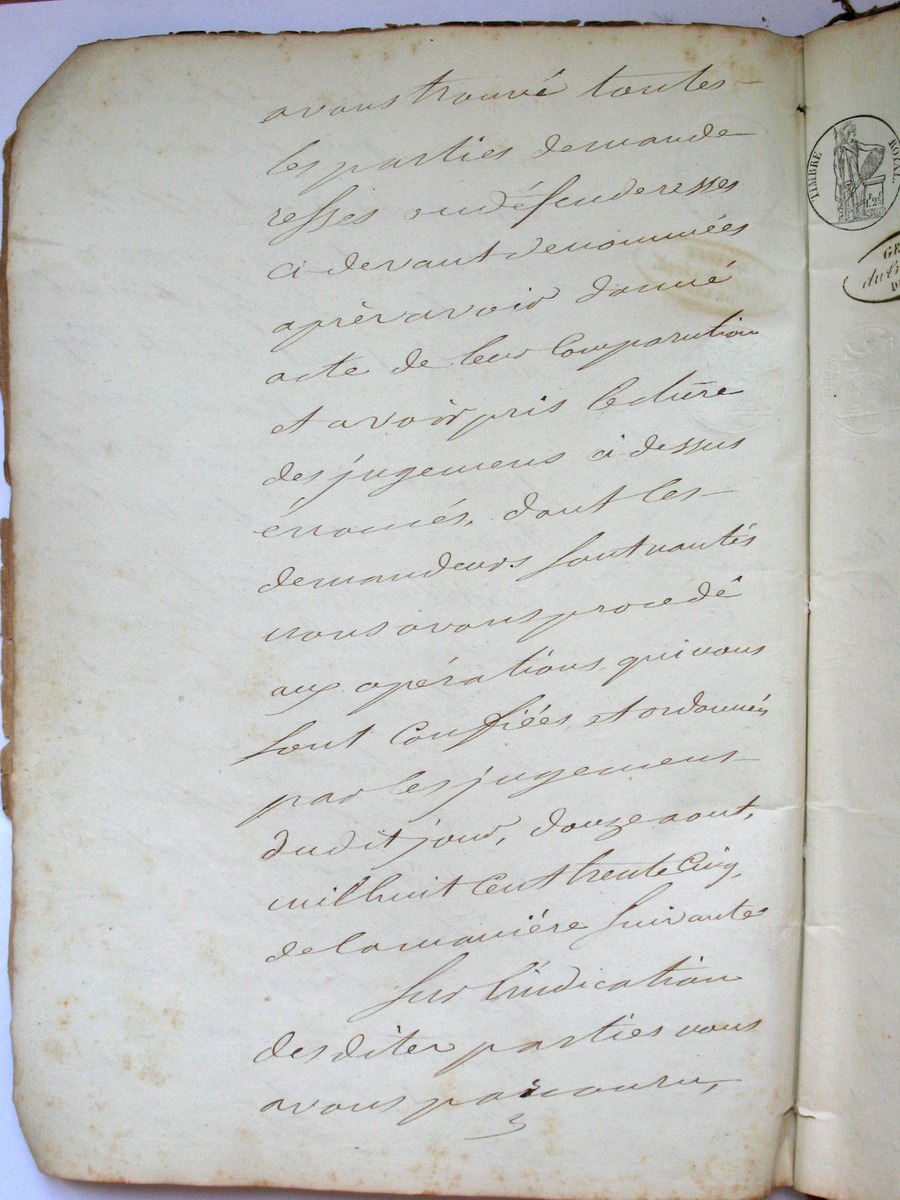 avons trouvé toutes
les parties demande
resses ou défenderesses
ci-devant denommées
après avoir donné
acte de leur Comparution
et avoir pris lecture
des jugemens ci dessus
énoncés, dont les
demandeurs sont nantis
nous avons procédé
aux opérations qui nous
sont Confiées et ordonnées
par les jugemens
dudit jour, douze aout,
mil huit Cent trente Cinq,
de la manière suivante
Sur l'indication
des dites parties nous
avons parcouru,
TIMBRE ROYAL.